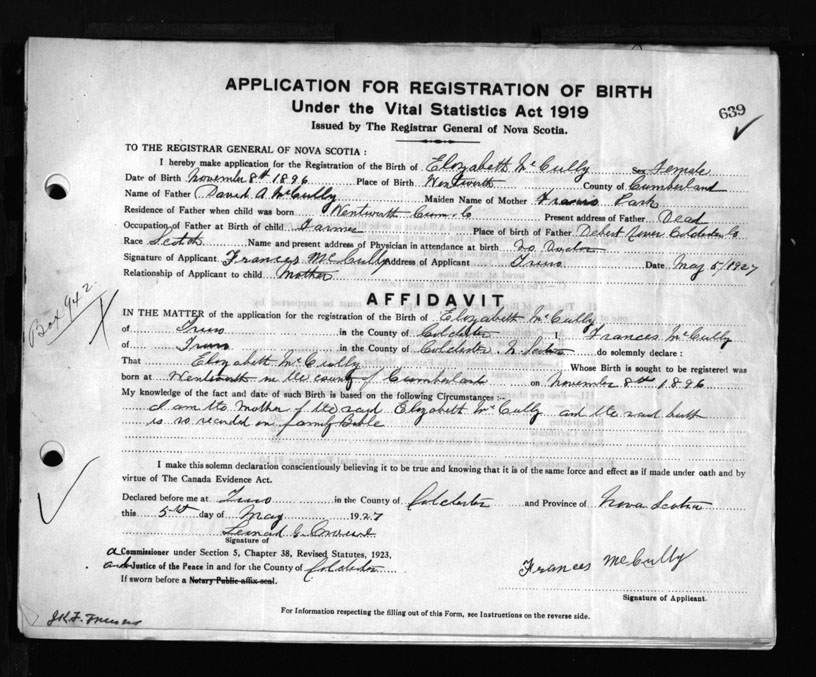 APPLICATION FOR REGISTRATION OF BIRTH
Under the Vital Statistics Act 1919
639
Issued by The Registrar General of Nova Scotia.
TO THE REGISTRAR GENERAL OF NOVA SCOTIA :
I hereby make application for the Registration of the Birth of Elizabeth McCully Sex Female
Date of Birth November 8th 1896 Place of Birth Wentworth County of Cumberland
Name of Father David A McCully Maiden Name of Mother Park
Residence of Father when child was born Wentworth Cum. Co Present address of Father Dead
Occupation of Father at Birth of child Farmer Place of birth of Father Debert River Colchester Co
Race Scotch Name and present address of Physician in attendance at birth No Doctor
Signature of Applicant Frances McCully Address of Applicant Truro Date May 5/1927
Relationship of Applicant to child Mother
Box 942
AFFIDAVIT
IN THE MATTER of the application for the registration of the Birth of Elizabeth McCully
of Truro in the County of Colchester I, Frances McCully
of Truro in the County of Colchester N. Scotia do solemnly declare :
That Elizabeth McCully Whose Birth is sought to be registered was
born at Wentworth in the county of Cumberland on November 8th 1896
My knowledge of the fact and date of such Birth is based on the following Circumstances :–
I am the Mother of the said Elizabeth McCully and the said birth
is so recorded on family Bible
I make this solemn declaration conscientiously believing it to be true and knowing that it is of the same force and effect as if made under oath and by
virtue of The Canada Evidence Act.
Declared before me at Truro in the County of Colchester and Province of Nova Scotia
this 5th day of May 1927
Signature of
a Commissioner under Section 5, Chapter 38, Revised Statutes, 1923,
Justice of the Peace in and for the County of Colchester
If sworn before a Notary Public affix seal.
Frances McCully
Signature of Applicant.
For Information respecting the filling out of this Form, see Instructions on the reverse side.